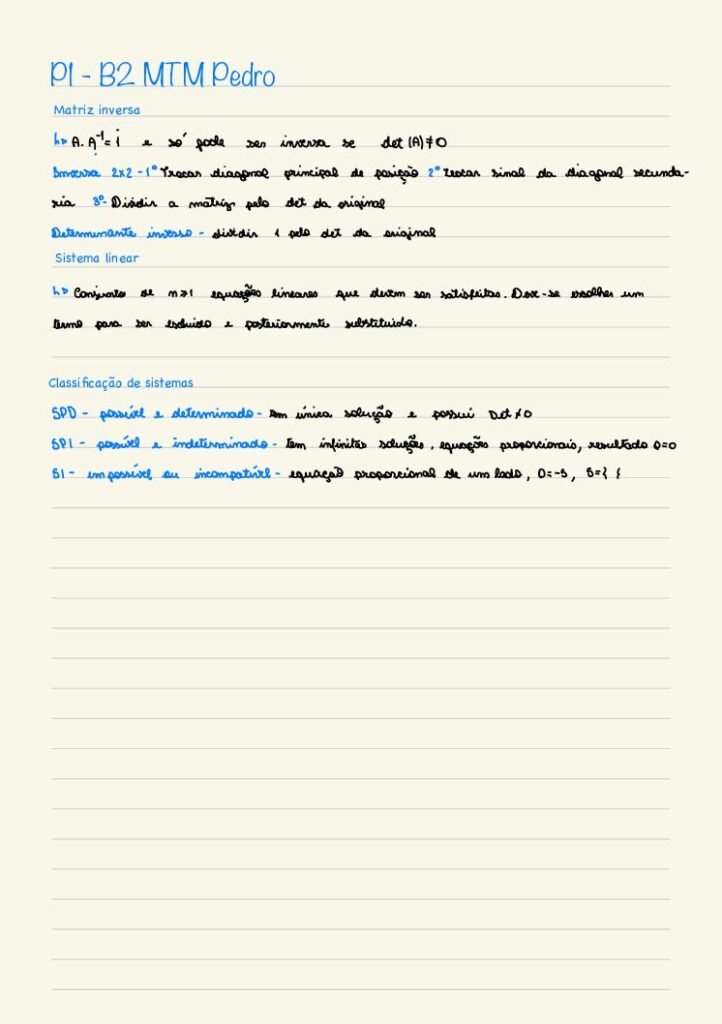 P1 - B2 MTM Pedro
Matriz inversa
↳ A. A⁻¹ = i e só pode ser inversa se det (A) ≠ 0
Inversa 2x2 - 1º Trocar diagonal principal de posição 2º trocar sinal da diagonal secunda-
ria 3º- Dividir a matriz pelo det da original
Determinante inverso - dividir 1 pelo det da original
Sistema linear
↳ Conjunto de n≥1 equações lineares que devem ser satisfeitas. Deve-se escolher um
termo para ser excluido e posteriormente substituido.
Classificação de sistemas
SPD - possível e determinado - tem única solução e possui Det ≠ 0
SPI - possível e indeterminado - tem infinitas soluções, equações proporcionais, resultado 0=0
SI - impossível ou incompatível - equação proporcional de um lado, 0=-5, S={ }